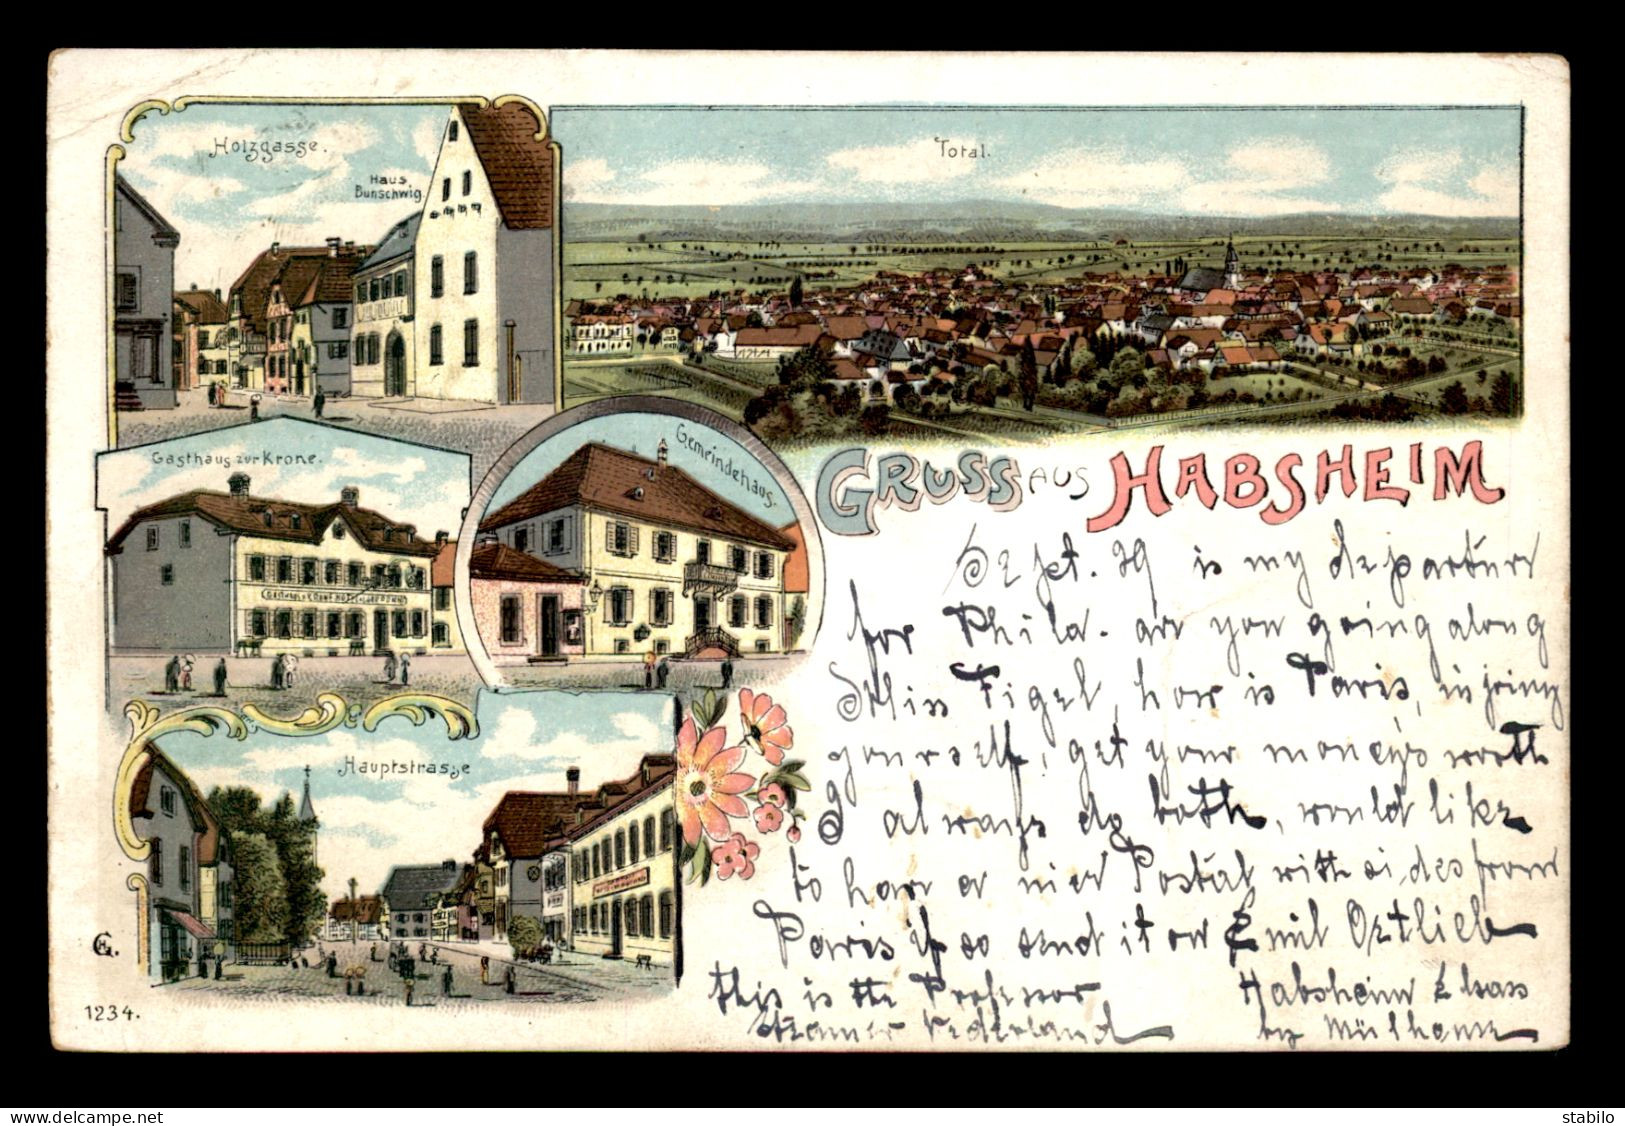 Holzgasse.
Haus
Bunschwig.
Total.
Gasthaus zur Krone.
Gemeindehaus.
GRUSS AUS HABSHEIM
Hauptstrasse
Sept. 29 is my departure
for Phila. are you going along
Miss Figel, how is Paris, injoing
yourself, get your moneys worth
I always do both, would like
to have a nice Postal with sides from
Paris if so send it on Emil Ortlieb
this is the Professor Habsheim Elsass
Steamer Nederland by Mülhausen
CHG.
1234.
stabilo